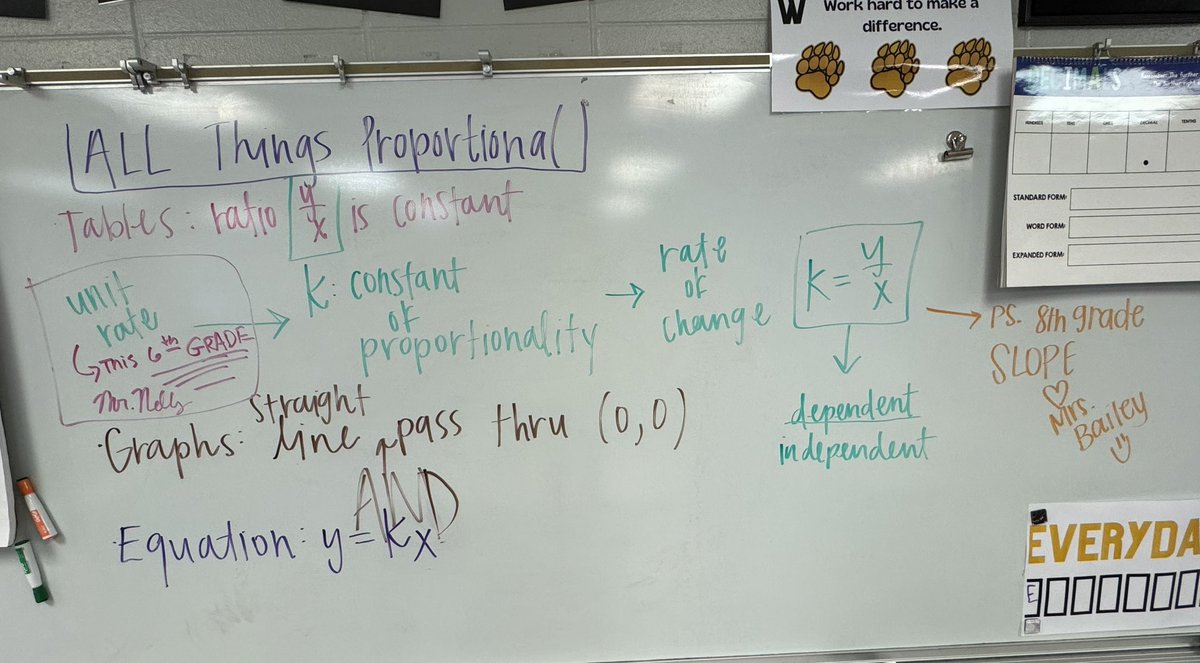 W Work hard to make a
difference.
DECIMALS
HUNDREDS TENS ONES DECIMAL TENTHS
.
STANDARD FORM:
WORD FORM:
EXPANDED FORM:
ALL Things Proportional
Tables: ratio y/x is constant
unit
rate
↳ This 6th GRADE
→ k: constant
of
proportionality
→ rate
of
change
k = y/x
↓
dependent
independent
→ PS. 8th grade
SLOPE
♡
Mrs.
Bailey
Graphs: straight
line pass thru (0,0)
AND
Equation: y = kx
EVERYDA
E